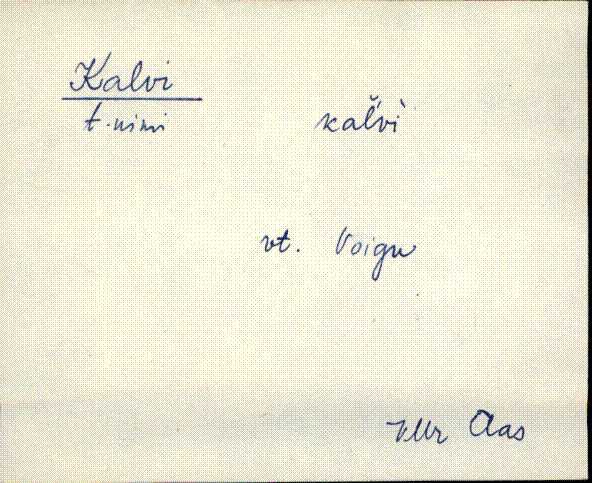 Kalvi
t. nimi kaĺvì
vt. Voigu
VMr Aas